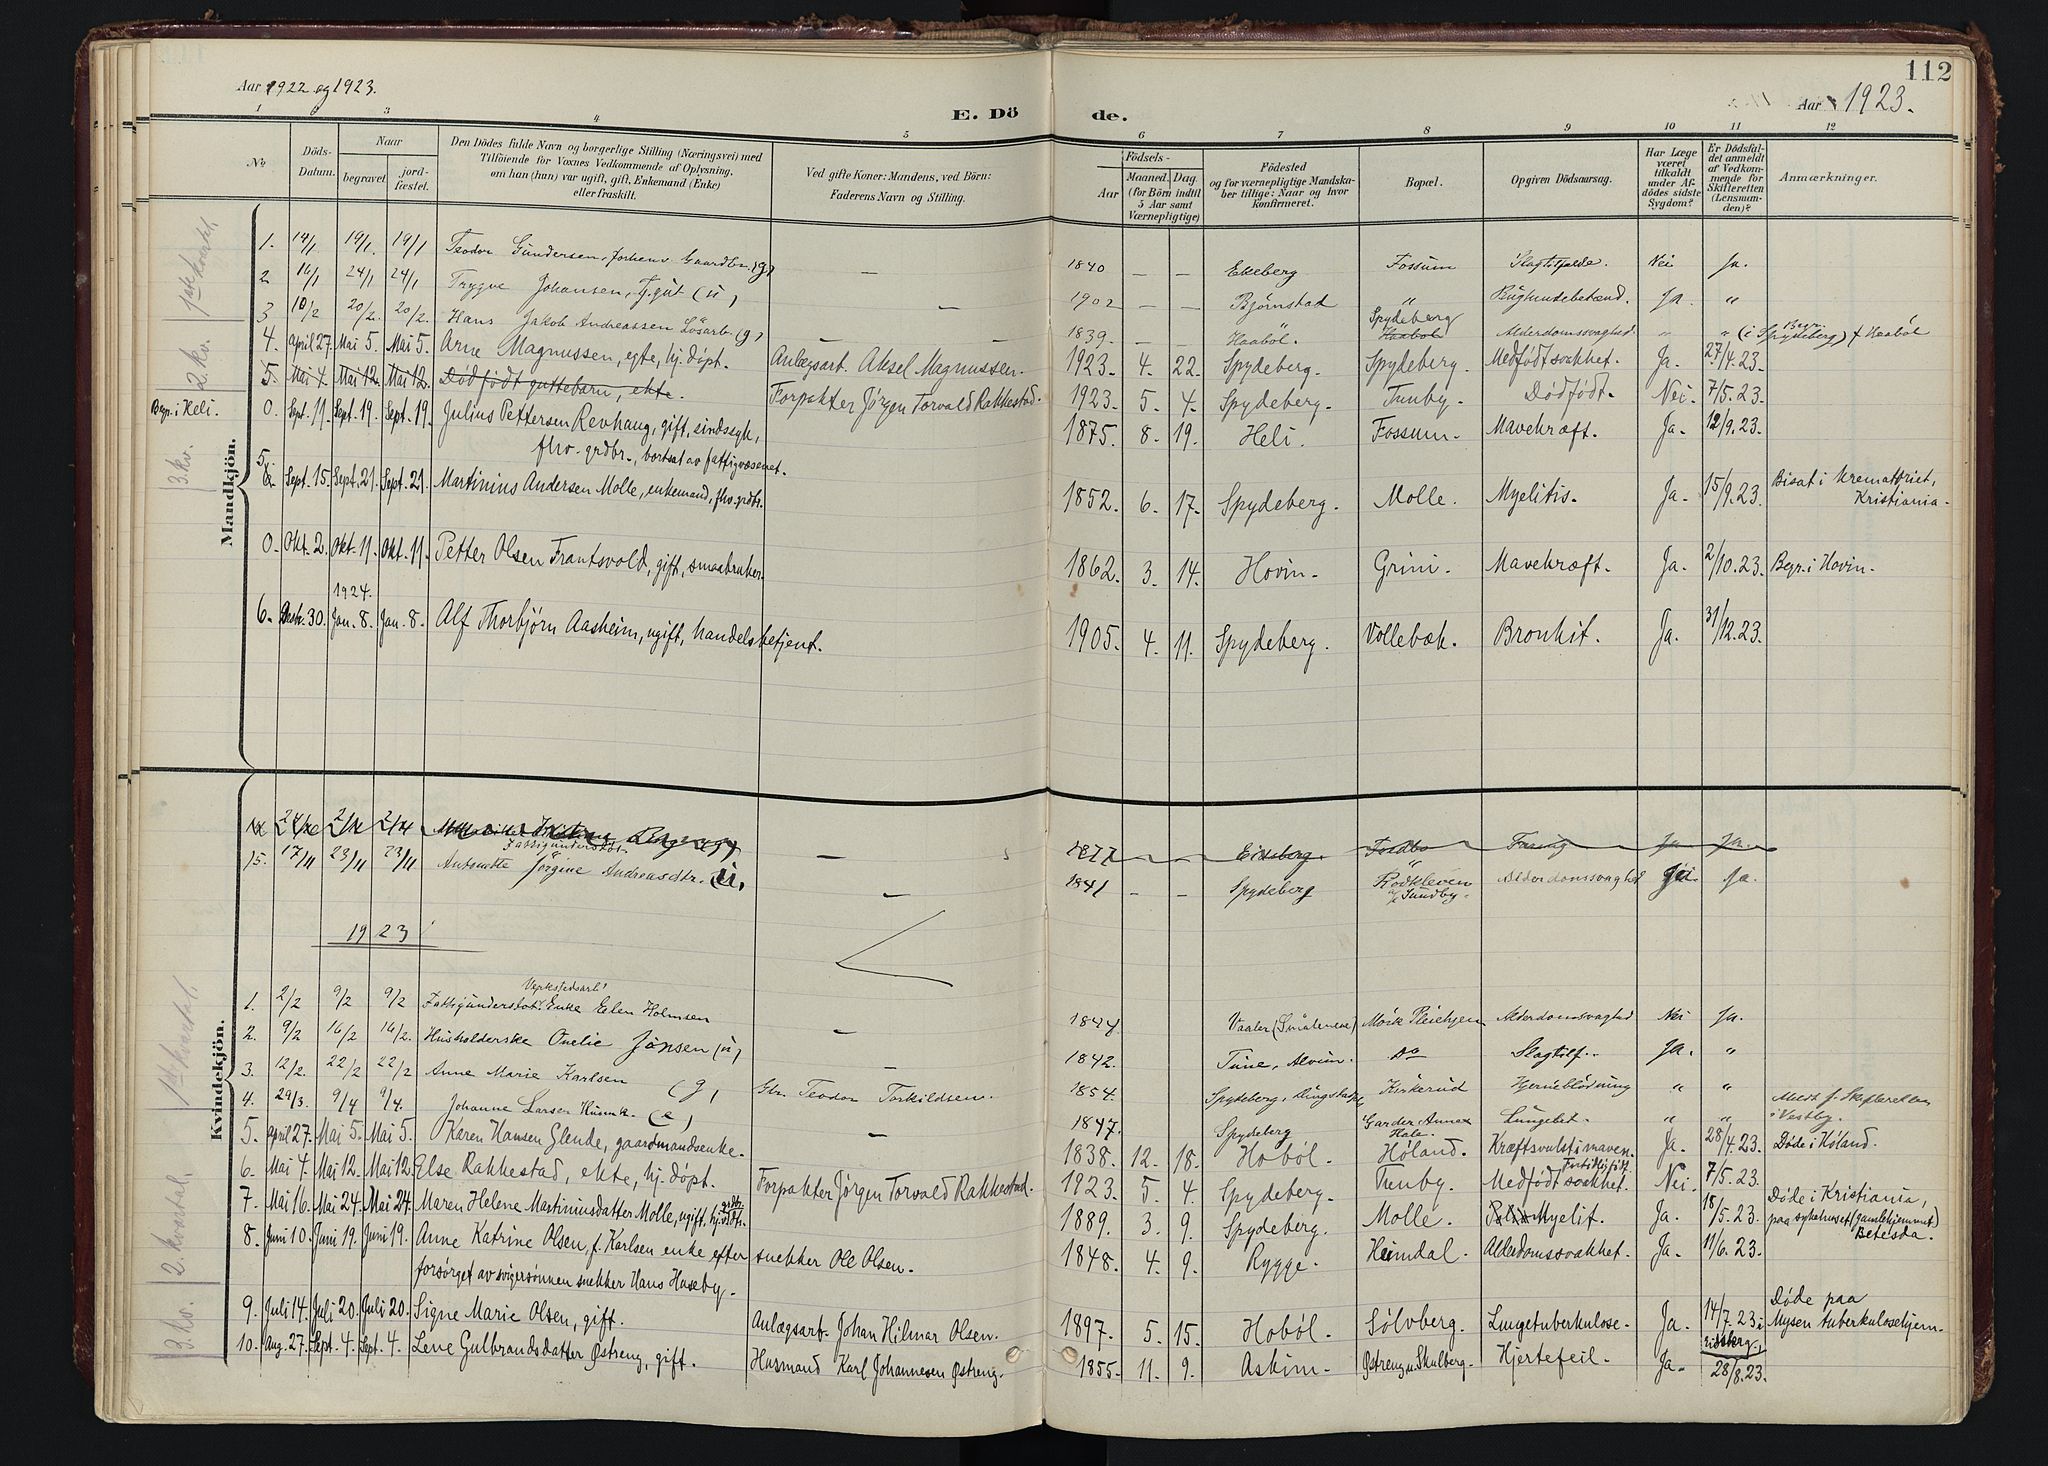 112
Aar 1922 og 1923.
E. Dö de.
Aar 1923.
1 2 3 4 5 6 7 8 9 10 11 12
No. Döds-Datum. Naar begravet. jordfæstet. Den Dödes fulde Navn og borgerlige Stilling (Næringsvei) med Tilföiende for Voxnes Vedkommende af Oplysning, om han (hun) var ugift, gift, Enkemand (Enke) eller fraskilt. Ved gifte Koner: Mandens, ved Börn: Faderens Navn og Stilling. Födsels- Aar Maaned. Dag (for Börn indtil 5 Aar samt Værnepligtige) Födested og for værnepligtige Mandskaber tillige: Naar og hvor konfirmeret. Bopæl. Opgiven Dödsaarsag. Har Læge været tilkaldt under Afdödes sidste Sygdom? Er Dödsfaldet anmeldt af Vedkommende for Skifteretten (Lensmanden)? Anmærkninger.
Mandkjön.
1ste kvartal,
1. 14/1 19/1. 19/1 Teodor Gundersen, Gaardbr. (g) — 1840 — — Ekeberg Fossum Slagtilfælde. Nei Ja.
2 16/1 24/1 24/1 Trygve Johansen, Tj.gut (u) — 1902 — — Bjørnstad " Bughindebetænd. Ja. "
3 10/2 20/2. 20/2. Hans Jakob Andreassen Løsarb. (g) — 1839. — — Haaböl. Spydeberg Haaböl Alderdomssvaghed " " (i Spydeberg) Begr. i Haaböl
2. kv.
4. April 27. Mai 5. Mai 5. Arne Magnussen, egte, hj.døpt. Anlægsarb. Aksel Magnussen. 1923. 4. 22. Spydeberg. Spydeberg. Medfödt svakhet. Ja. 27/4.23.
5. Mai 4. Mai 12. Mai 12. Dødfødt guttebarn, ekte. Forpakter Jörgen Torvald Rakkestad. 1923. 5. 4. Spydeberg. Tunby. Dödfödt. Nei. 7/5.23.
Begr. i Heli. 0. Sept. 11. Sept. 19. Sept. 19. Julius Pettersen Revhaug, gift, sindssyk, 1875. 8. 19. Heli. Fossum. Mavekræft. Ja. 12/9.23.
fhv. grdbr., bortsat av fattigvæsenet.
3. kv.
5. Sept. 15. Sept. 21. Sept. 21. Martinius Andersen Molle, enkemand, fhv. grdbr. 1852. 6. 17. Spydeberg. Molle. Myelitis. Ja. 15/9.23. Bisat i krematoriet, Kristiania.
0. Okt. 2. Okt. 11. Okt. 11. Petter Olsen Frantsvold, gift, smaabruker. 1862. 3. 14. Hovin. Grini. Mavekræft. Ja. 2/10.23. Begr. i Hovin.
1924.
6. Desbr. 30. Jan. 8. Jan. 8. Alf Thorbjørn Aasheim, ugift, handelsbetjent. 1905. 4. 11. Spydeberg. Vollebæk. Bronkit. Ja. 31/12.23.
Kvindekjön.
— 1877 — — Eidsberg. Ja Ja.
15. 17/11 23/11 23/11 Fattigunderstøt. Antonette Jörgine Andreasdtr. (u) — 1841 — — Spydeberg Rodkleven u/ Sundby. Alderdomssvaghed Ja.
1923
1ste kvartal,
1. 2/2 9/2 9/2 Verkstedsarb. Fattigunderstøt. Enke Elen Holmsen — Vaaler (Smålenene) Mörk Pleiehjem Alderdomssvaghed Nei Ja.
2. 9/2 16/2 16/2. Husholderske Onelie Jonsen (u) — 1842. Tune, Alvim. Do Slagtilf. Ja. "
3. 12/2. 22/2 22/2 Anne Marie Karlsen (g) Gbr. Teodor Torkildsen. 1854. Spydeberg, Kirkerud Hjerneblödning " "
4. 29/3. 9/4 9/4. Johanne Larsen Husmk. (e) — 1847. Spydeberg Garder Annex Lungebet. " " Meldt f. Skifteretten i Vestby.
2. kvartal,
5. April 27. Mai 5. Mai 5. Karen Hansen Glende, gaardmandsenke. 1838. 12. 18. Hoböl. Höland. Kræftsvulst i maven. Ja. 28/4.23. Døde i Höland.
6. Mai 4. Mai 12. Mai 12. Else Rakkestad, ekte, hj. døpt. Forpakter Jörgen Torvald Rakkestad. 1923. 5. 4. Spydeberg. Tunby. Fortidlig født. Medfödt svakhet. Nei. 7/5.23.
7. Mai 16. Mai 24. Mai 24. Maren Helene Martiniusdatter Molle, ugift, hj.v. grdbr. 1889. 3. 9. Spydeberg. Molle. Myelit. Ja. 18/5.23. Døde i Kristiania, paa sykehuset (gamlehjemmet) Betesda.
8. Juni 10. Juni 19. Juni 19. Anne Katrine Olsen, f. Karlsen enke efter snekker Ole Olsen. 1848. 4. 9. Rygge. Heimdal. Alderdomssvakhet. Ja. 11/6.23.
forsørget av svigersønnen snekker Hans Haseby.
3. kv.
9. Juli 14. Juli 20. Juli 20. Signe Marie Olsen, gift. Anlægsarb. Johan Hilmar Olsen. 1897. 5. 15. Hoböl. Sölvberg. Lungetuberkulose. Ja. 14/7.23 i Eidsberg. Døde paa Mysen tuberkulosehjem.
10. Aug. 27. Sept. 4. Sept. 4. Lene Gulbrandsdatter Østreng, gift. Husmand Karl Johannesen Østreng. 1855. 11. 9. Askim. Østreng u. Skulberg. Hjertefeil. Ja. 28/8.23.